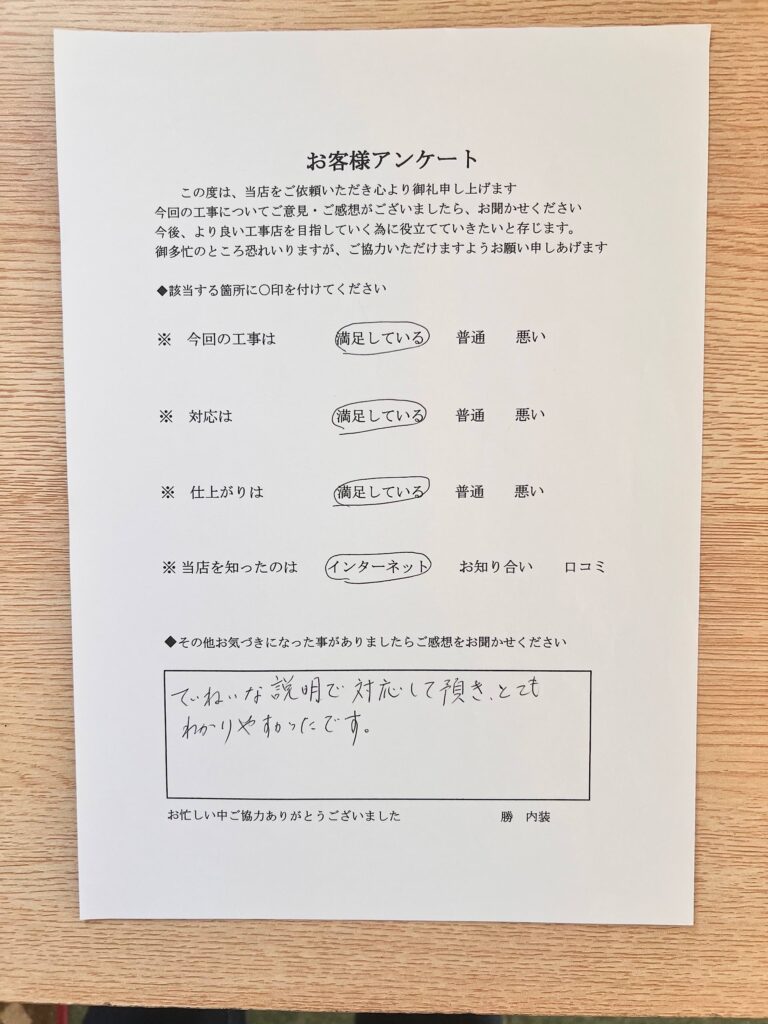 お客様アンケート
この度は、当店をご依頼いただき心より御礼申し上げます
今回の工事についてご意見・ご感想がございましたら、お聞かせください
今後、より良い工事店を目指していく為に役立てていきたいと存じます。
御多忙のところ恐れいりますが、ご協力いただけますようお願い申しあげます
◆該当する箇所に〇印を付けてください
※ 今回の工事は 満足している 普通 悪い
※ 対応は 満足している 普通 悪い
※ 仕上がりは 満足している 普通 悪い
※ 当店を知ったのは インターネット お知り合い 口コミ
◆その他お気づきになった事がありましたらご感想をお聞かせください
ていねいな説明で対応して頂き、とても
わかりやすかったです。
お忙しい中ご協力ありがとうございました 勝 内装